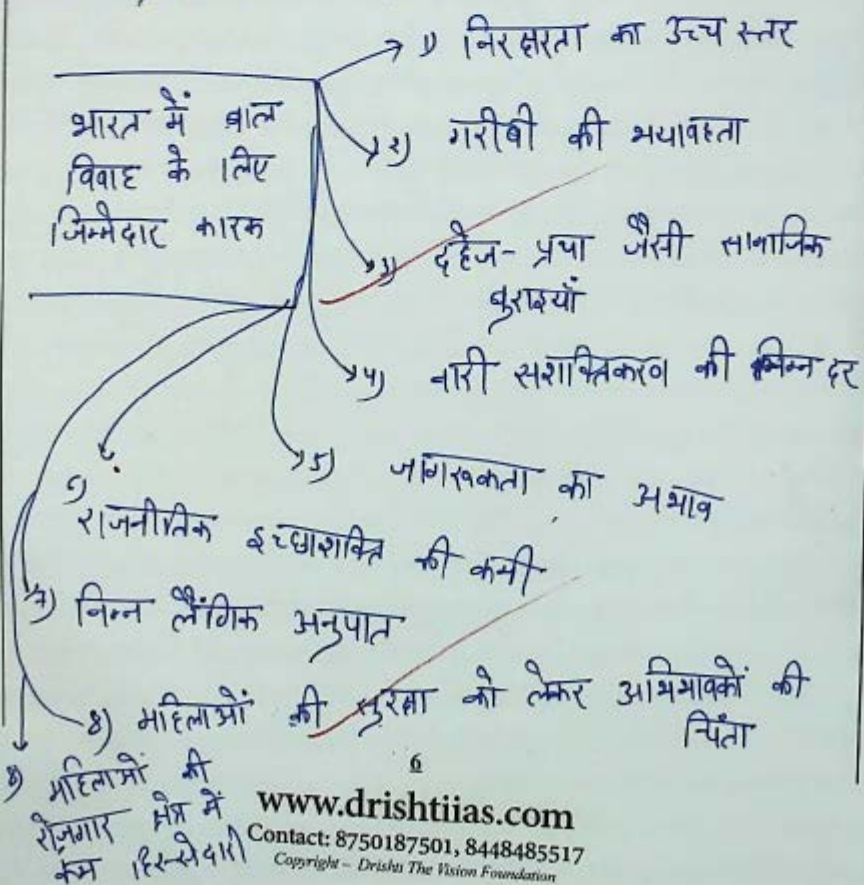 भारत में बाल
विवाह के लिए
जिम्मेदार कारक
1) निरक्षरता का उच्च स्तर
2) गरीबी की भयावहता
3) दहेज- प्रथा जैसी सामाजिक
बुराइयाँ
4) नारी सशक्तिकरण की निम्न दर
5) जागरूकता का अभाव
6) राजनीतिक इच्छाशक्ति की कमी
7) निम्न लैंगिक अनुपात
8) महिलाओं की सुरक्षा को लेकर अभिभावकों की
चिंता
8) महिलाओं की
रोजगार क्षेत्र में
कम हिस्सेदारी
6
www.drishtiias.com
Contact: 8750187501, 8448485517
Copyright – Drishti The Vision Foundation